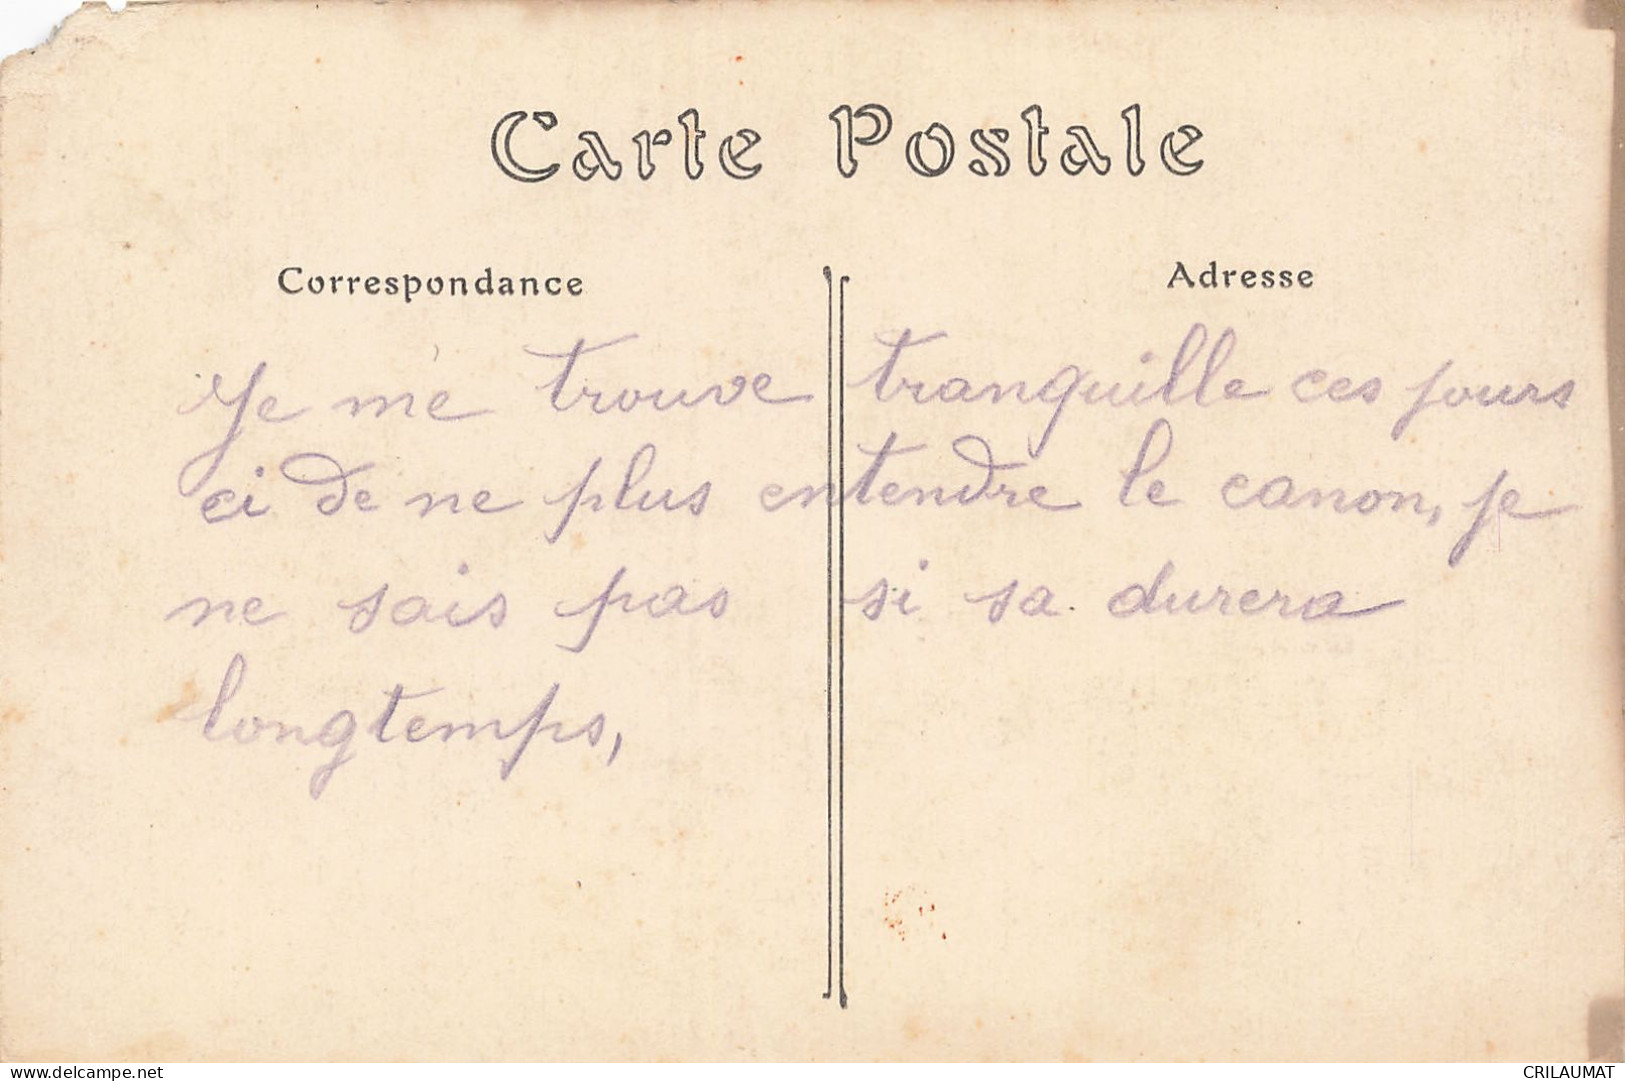 Carte Postale
Correspondance
Adresse
Je me trouve tranquille ces jours
ci de ne plus entendre le canon, je
ne sais pas si sa durera
longtemps,
delcampe.net
CRILAUMAT